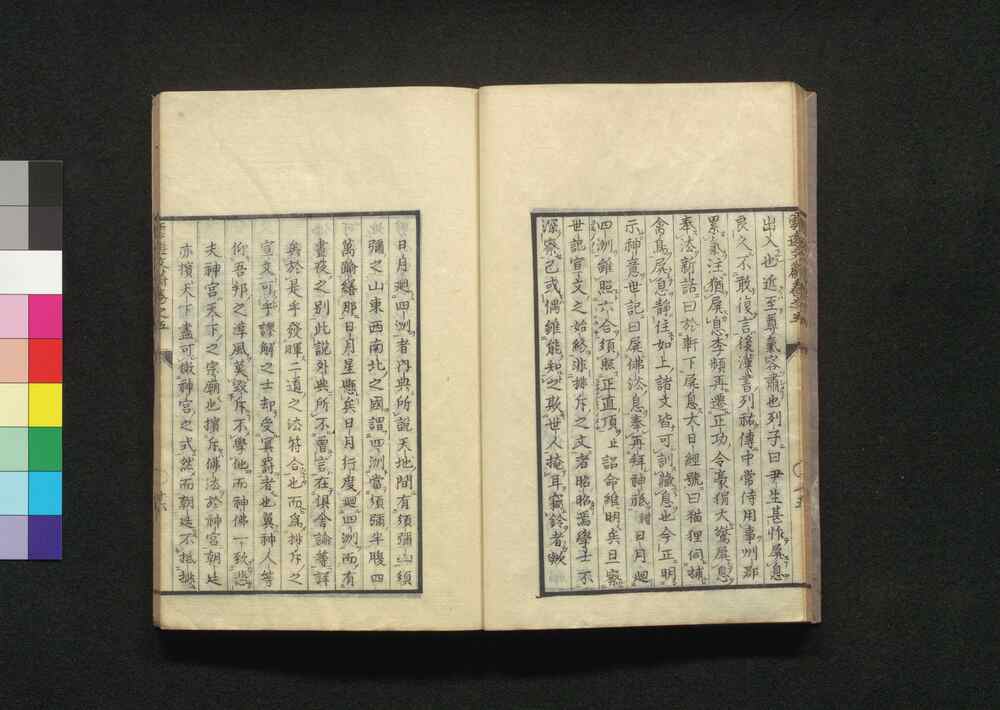 出入也近至尊
義容肅也列子曰尹生甚怍屏息
良久不敢復言後漢書列
傳中常侍用事州郡
累氣注
猶屏息
李
頻再遷正功令豪猾大驚屏息
奉法新語曰於軒下屏息大日經號曰猫狸伺捕
禽鳥屏息靜住如上諸文皆可訓藏息也今正明
示神意世記曰屏佛法息奉再拜神祇
日月廻
四洲雖照六合須照正直頂
上
詔命維明矣旦察
世記宣文之始終非排斥之文者昭昭焉學士不
深察己或偶雖能知之欺世人掩耳竊鈴者歟
日月廻四洲者內典所說天地間有須彌山須
彌之山東西南北之國謂四洲當須彌半腹四
萬踰繕那日月星懸矣日月行度廻四洲而有
晝夜之別此說外典所不嘗言在俱舍論等詳
矣於是乎發暉二道之法符合也而爲排斥之
宣文可乎謬解之士却受冥罸者也冀神人等
仰吾邦之淳風莫毀斥不學他而神佛一致悲
夫神宮天下之宗廟也擯斥佛法於神宮朝廷
亦擯天下盡可傚神宮之式然而朝廷不抵排